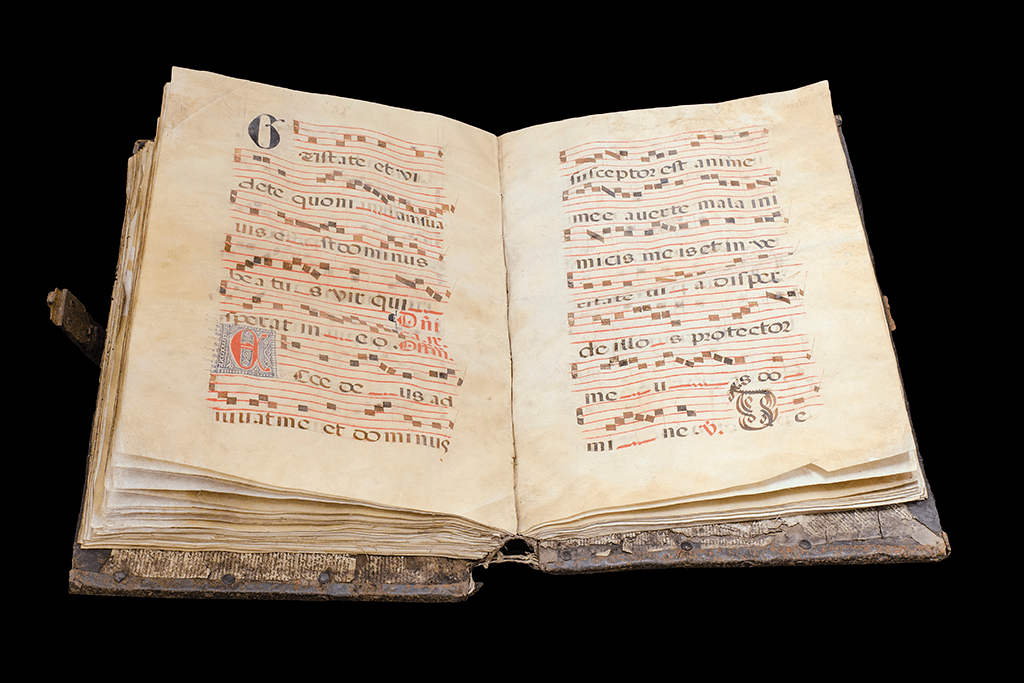 G
ustate et vi
dete quoni am suavis
uis e st dominus
beatus vir qui
sperat in eo. Dñi
E
cce de us ad
iuvat me et dominus
susceptor est anime
mee averte mala ini
micis meis et in ve
ritate tu a disper
de illo s protector
me us do
mi ne. v. D e